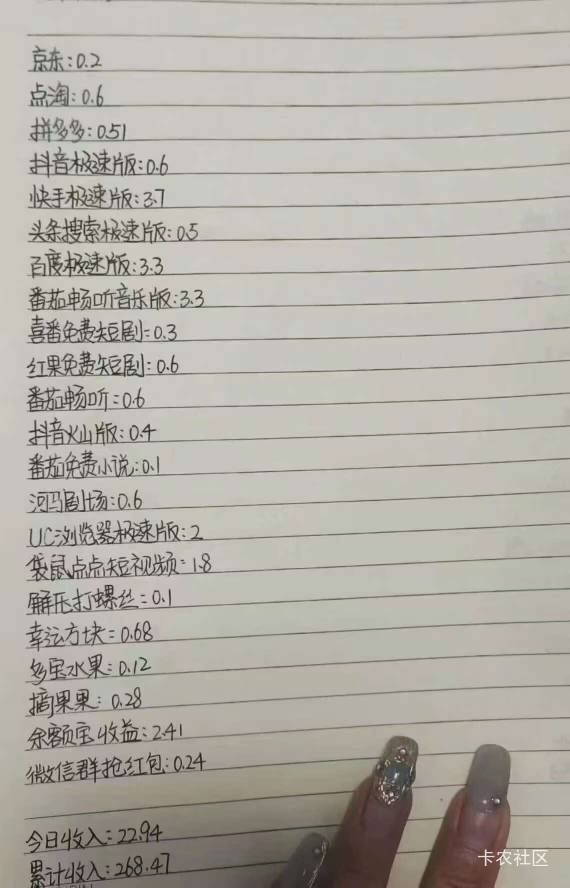 京东:0.2
点淘:0.6
拼多多:0.51
抖音极速版:0.6
快手极速版:3.7
头条搜索极速版:0.5
百度极速版:3.3
番茄畅听音乐版:3.3
喜番免费短剧:0.3
红果免费短剧:0.6
番茄畅听:0.6
抖音火山版:0.4
番茄免费小说:0.1
河马剧场:0.6
UC浏览器极速版:2
袋鼠点点短视频:1.8
解压打螺丝:0.1
幸运方块:0.68
多宝水果:0.12
摘果果:0.28
余额宝收益:2.41
微信群抢红包:0.24
今日收入:22.94
累计收入:268.47
卡农社区